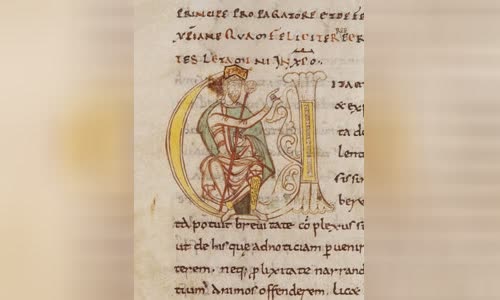 PRINCIPE PROPAGATORE ET DEFE
QUAM FELICITER
TES LETAMINI IN XPO.
ITA
& exp
ta do
lent
sissi
ber
ta potuit brevitate cõplexus si
ut de hisque ad noticiam pervenir
terem, neq; plixitate narrand
tium animos offenderem. licæ